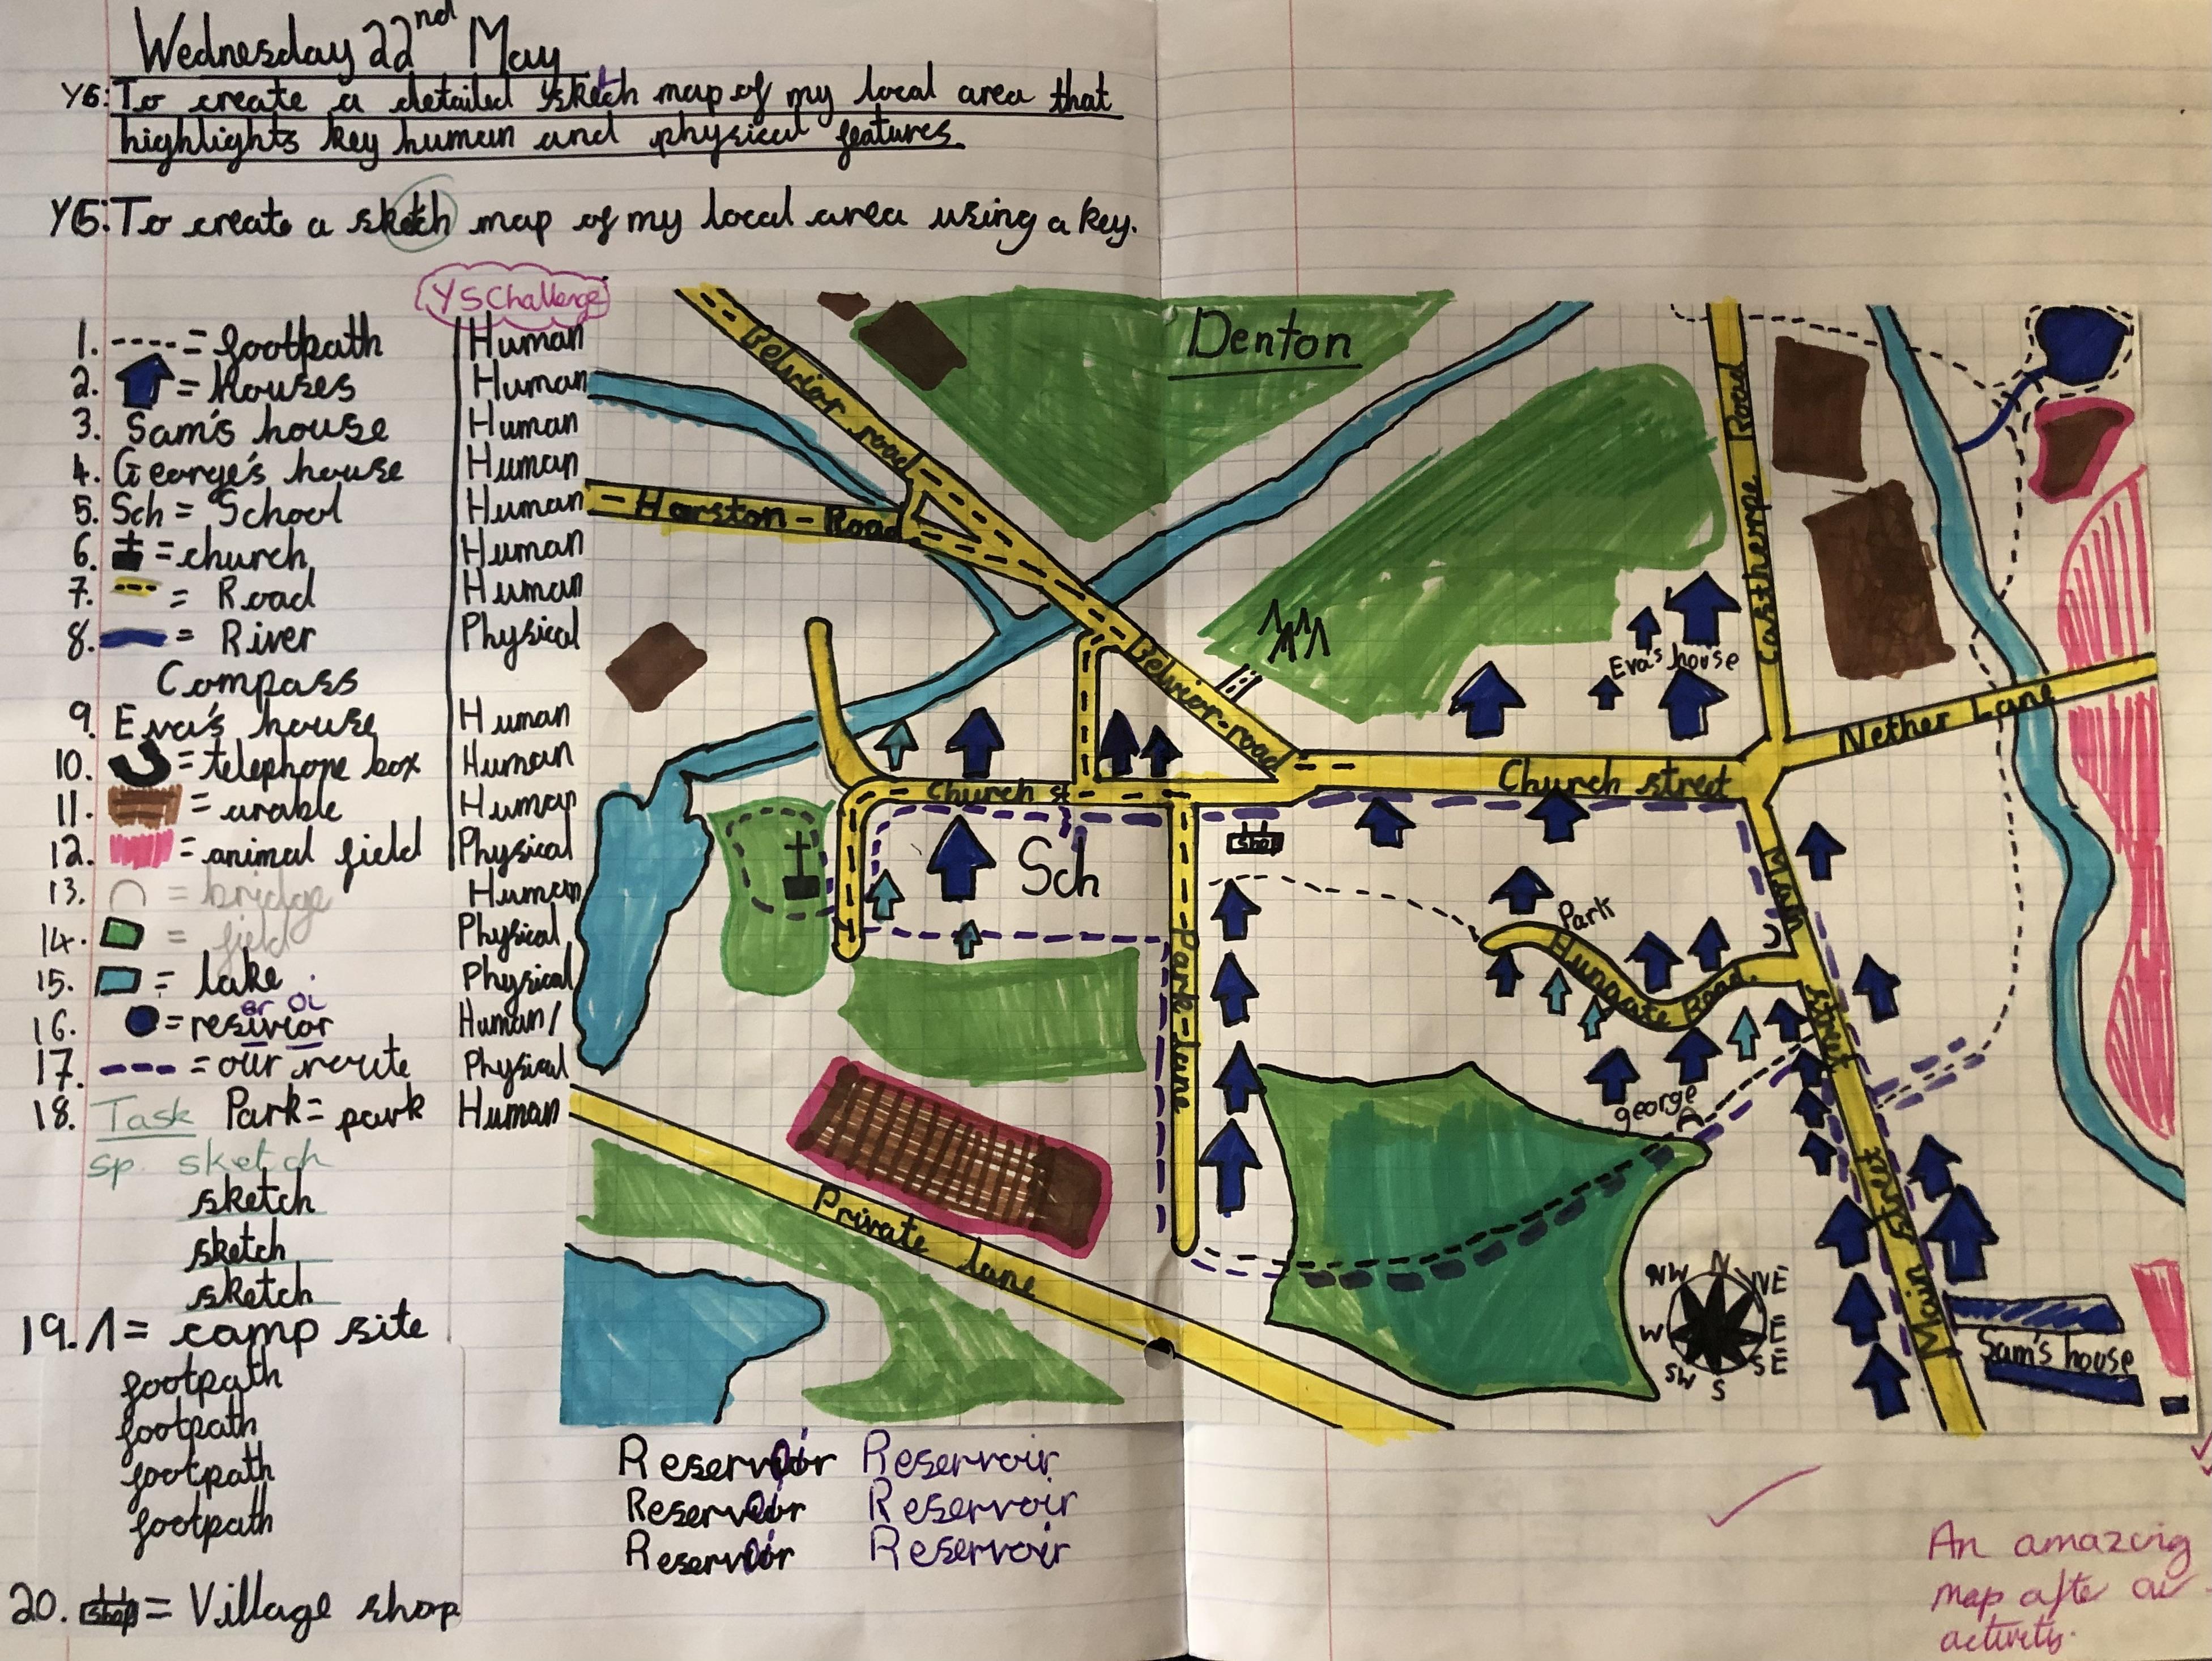 Wednesday 22nd May
Y6: To create a detailed sketch map of my local area that
highlights key human and physical features.
Y5: To create a sketch map of my local area using a key.
Y5 Challenge
1. ---- = footpath Human
2. = houses Human
3. Sam's house Human
4. George's house Human
5. Sch = School Human
6. = church Human
7. = Road Human
8. = River Physical
Compass
9. Eva's house Human
10. = telephone box Human
11. = arable Human
12. = animal field Physical
13. = bridge Human
14. = field Physical
15. = lake Physical
16. = resivior Human/
er oi
17. --- = our route Physical
18. Task Park = park Human
sp. sketch
sketch
sketch
sketch
19. Λ = camp site
footpath
footpath
footpath
footpath
20. shop = Village shop
Denton
Belvior road
Harston - Road
Casthorpe Road
Belvior-road
Eva's house
Nether Lane
Church st
Church street
Sch
shop
Main
Park
Hungate Road
Park-lane
street
george
Private lane
Main street
N
NE
E
SE
S
SW
W
NW
Sam's house
Reservoir Reservoir
Reservoir Reservoir
Reservoir Reservoir
An amazing
map after a
activity.